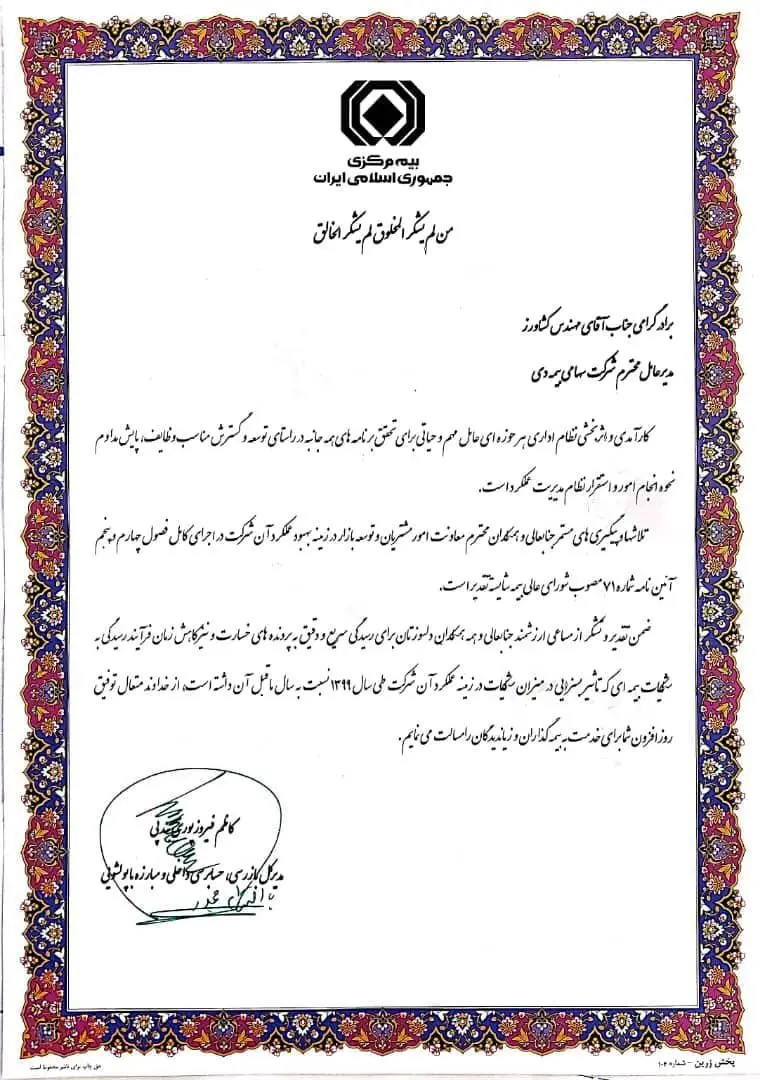 بیمه مرکزی
جمهوری اسلامی ایران
من لم یشکر المخلوق لم یشکر الخالق
برادر گرامی جناب آقای مهندس کشاورز
مدیرعامل محترم شرکت سهامی بیمه دی
کارآمدی و اثربخشی نظام اداری هر حوزه ای عامل مهم و حیاتی برای تحقق برنامه های همه جانبه در راستای توسعه و گسترش مناسب وظایف، پایش مداوم
نحوه انجام امور و استقرار نظام مدیریت عملکرد است.
تلاشها و پیگیری های مستمر جنابعالی و همکاران محترم معاونت امور مشتریان و توسعه بازار در زمینه بهبود عملکرد آن شرکت در اجرای کامل فصول چهارم و پنجم
آئین نامه شماره ۷۱ مصوب شورای عالی بیمه شایسته تقدیر است.
ضمن تقدیر و تشکر از مساعی ارزشمند جنابعالی و همه همکاران دلسوزتان برای رسیدگی سریع و دقیق به پرونده های خسارت و نیز کاهش زمان فرآیند رسیدگی به
شکایات بیمه ای که تاثیر بسزایی در میزان شکایات در زمینه عملکرد آن شرکت طی سال ۱۳۹۹ نسبت به سال ماقبل آن داشته است، از خداوند متعال توفیق
روز افزون شما برای خدمت به بیمه گذاران و زیاندیدگان را مسالت می نمایم.
کاظم فیروزپوری
مدیرکل بازرسی، حسابرسی داخلی و مبارزه با پولشویی
پخش زرین - شماره ۱۰۲
حق چاپ برای ناشر محفوظ است